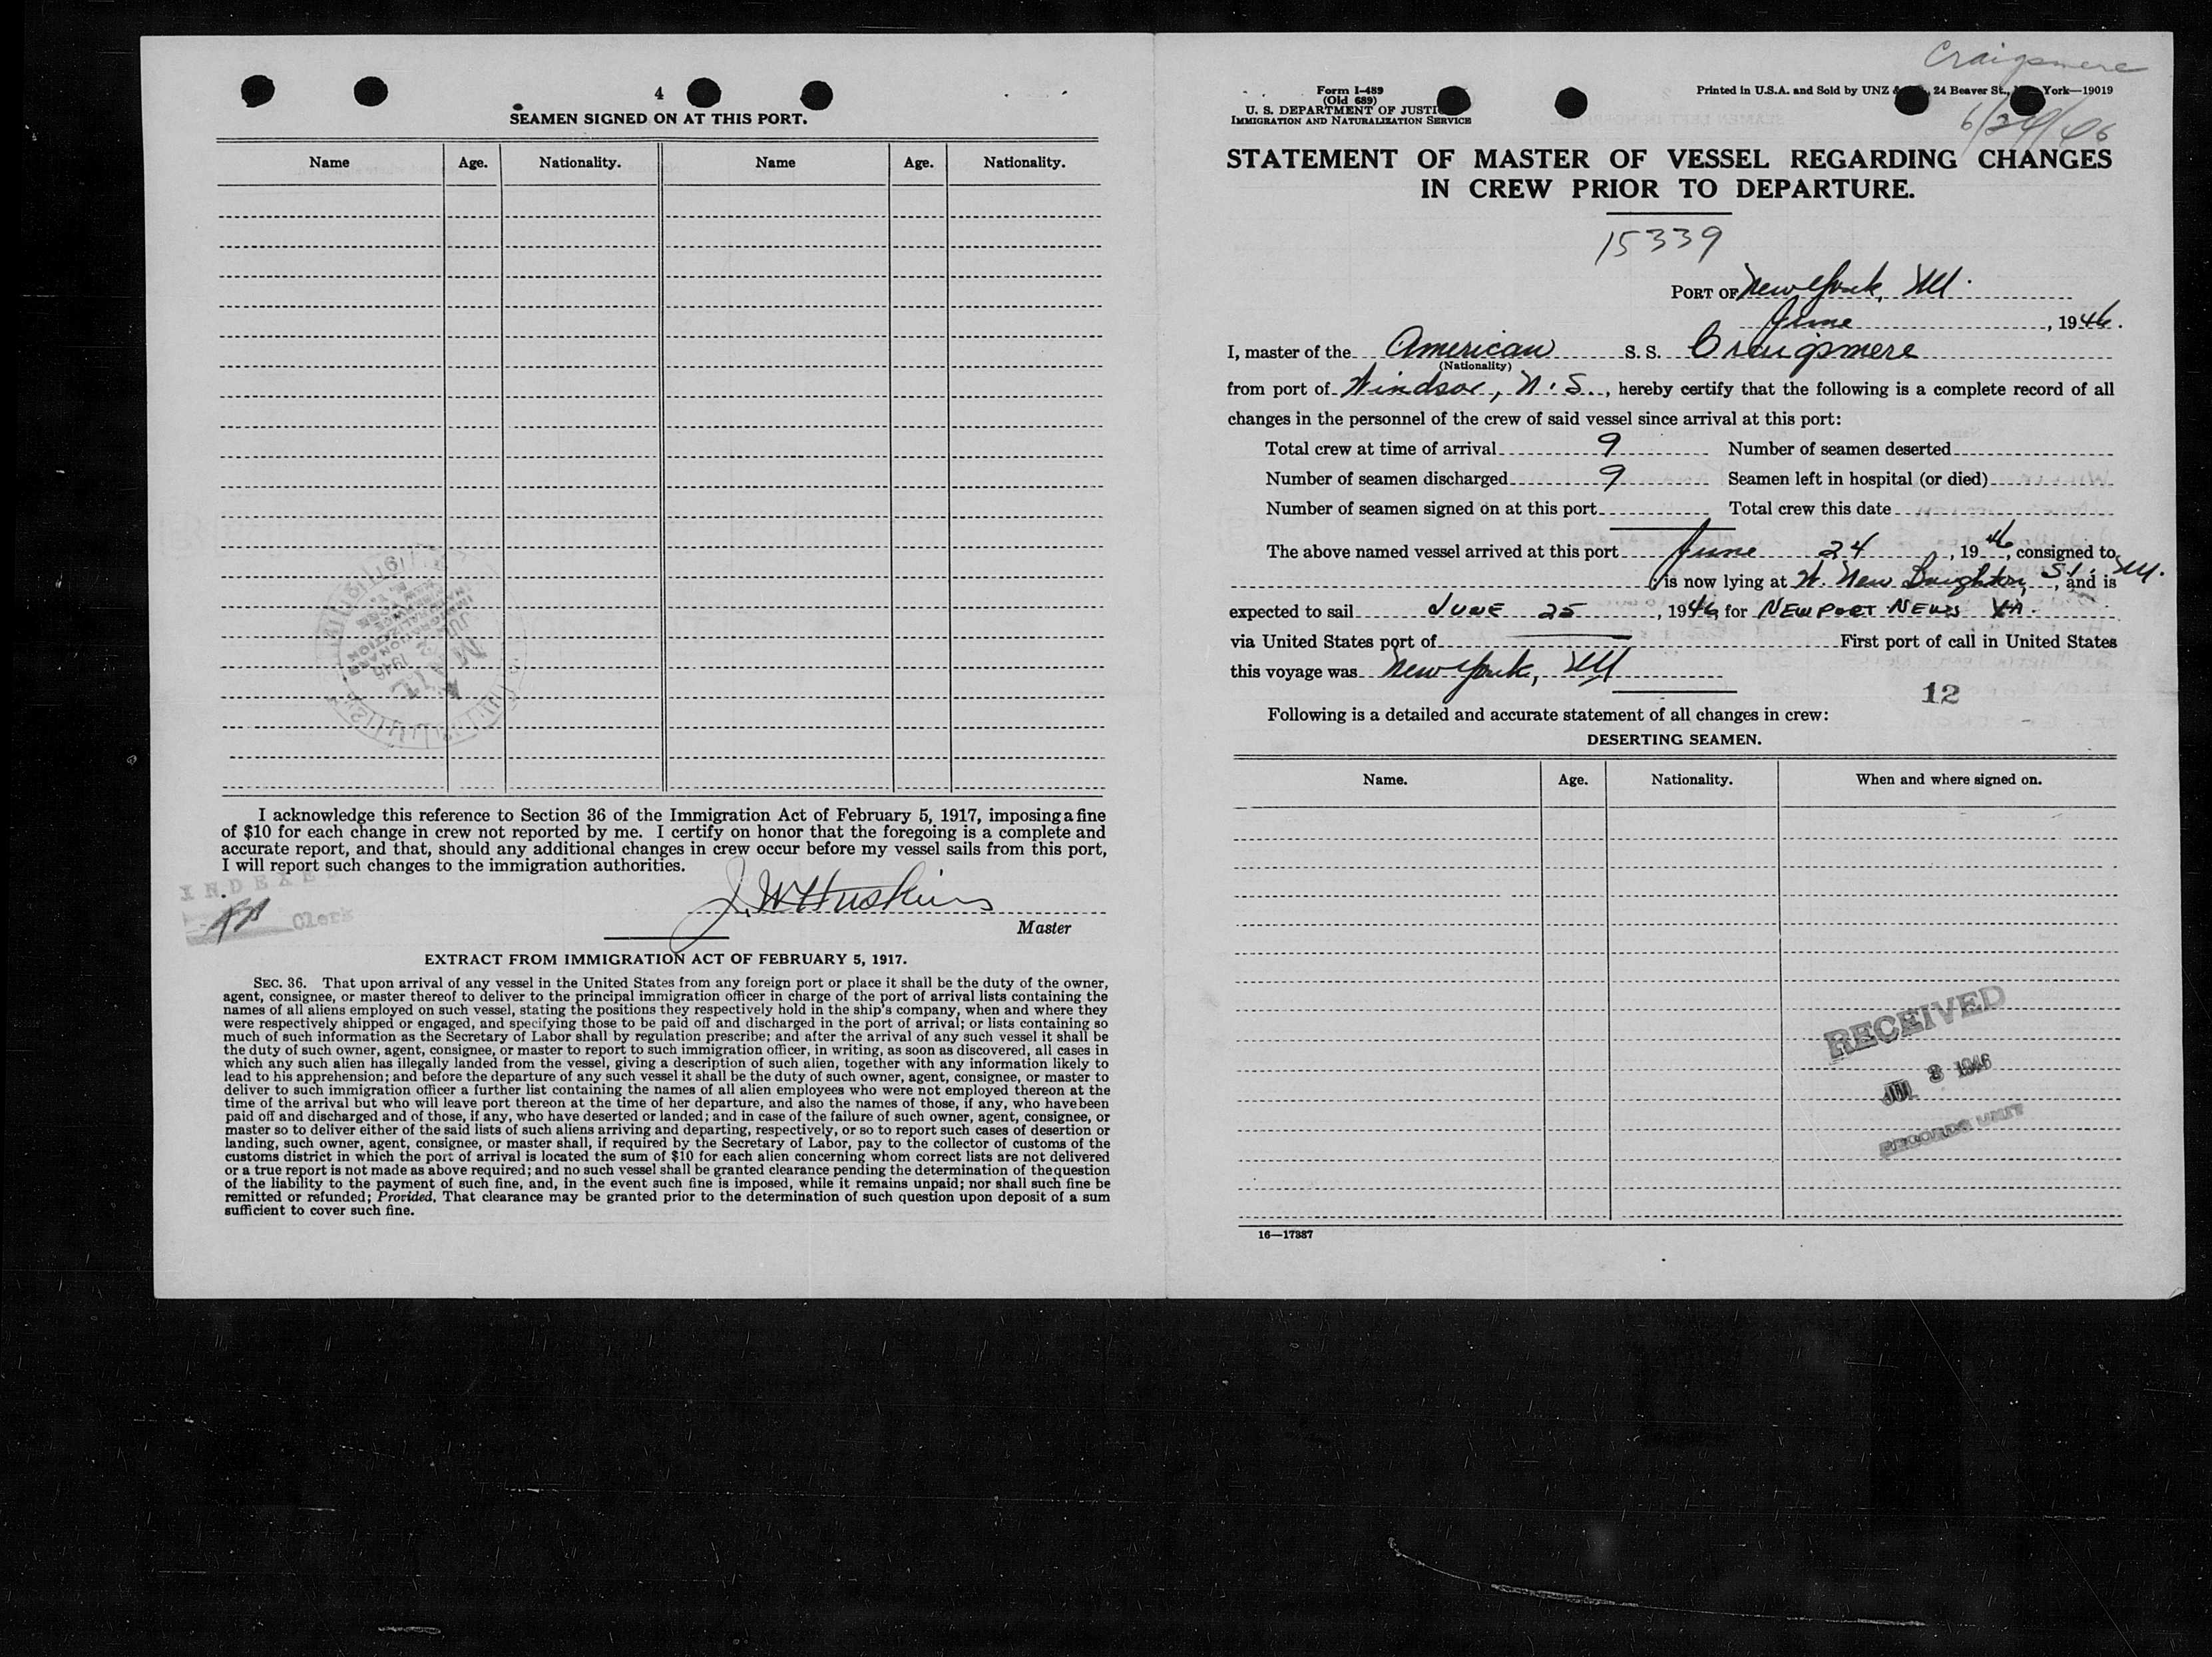 4
SEAMEN SIGNED ON AT THIS PORT.
Name Age. Nationality. Name Age. Nationality.
I acknowledge this reference to Section 36 of the Immigration Act of February 5, 1917, imposing a fine
of $10 for each change in crew not reported by me. I certify on honor that the foregoing is a complete and
accurate report, and that, should any additional changes in crew occur before my vessel sails from this port,
I will report such changes to the immigration authorities.
INDEXED
Clerk
J. W Huskins
Master
EXTRACT FROM IMMIGRATION ACT OF FEBRUARY 5, 1917.
SEC. 36. That upon arrival of any vessel in the United States from any foreign port or place it shall be the duty of the owner,
agent, consignee, or master thereof to deliver to the principal immigration officer in charge of the port of arrival lists containing the
names of all aliens employed on such vessel, stating the positions they respectively hold in the ship's company, when and where they
were respectively shipped or engaged, and specifying those to be paid off and discharged in the port of arrival; or lists containing so
much of such information as the Secretary of Labor shall by regulation prescribe; and after the arrival of any such vessel it shall be
the duty of such owner, agent, consignee, or master to report to such immigration officer, in writing, as soon as discovered, all cases in
which any such alien has illegally landed from the vessel, giving a description of such alien, together with any information likely to
lead to his apprehension; and before the departure of any such vessel it shall be the duty of such owner, agent, consignee, or master to
deliver to such immigration officer a further list containing the names of all alien employees who were not employed thereon at the
time of the arrival but who will leave port thereon at the time of her departure, and also the names of those, if any, who have been
paid off and discharged and of those, if any, who have deserted or landed; and in case of the failure of such owner, agent, consignee, or
master so to deliver either of the said lists of such aliens arriving and departing, respectively, or so to report such cases of desertion or
landing, such owner, agent, consignee, or master shall, if required by the Secretary of Labor, pay to the collector of customs of the
customs district in which the port of arrival is located the sum of $10 for each alien concerning whom correct lists are not delivered
or a true report is not made as above required; and no such vessel shall be granted clearance pending the determination of the question
of the liability to the payment of such fine, and, in the event such fine is imposed, while it remains unpaid; nor shall such fine be
remitted or refunded; Provided, That clearance may be granted prior to the determination of such question upon deposit of a sum
sufficient to cover such fine.
Craigsmere
6/24/46
Form I-489
(Old 689)
U. S. DEPARTMENT OF JUSTI
IMMIGRATION AND NATURALIZATION SERVICE
Printed in U.S.A. and Sold by UNZ & 24 Beaver St., York—19019
STATEMENT OF MASTER OF VESSEL REGARDING CHANGES
IN CREW PRIOR TO DEPARTURE.
15339
PORT OF New York, NY.
June, 1946.
I, master of the American S. S. Craigsmere
(Nationality)
from port of Windsor, N. S., hereby certify that the following is a complete record of all
changes in the personnel of the crew of said vessel since arrival at this port:
Total crew at time of arrival 9 Number of seamen deserted
Number of seamen discharged 9 Seamen left in hospital (or died)
Number of seamen signed on at this port Total crew this date
The above named vessel arrived at this port June 24, 1946, consigned to
; is now lying at W. New Brighton, S.I. NY., and is
expected to sail JUNE 25, 1946, for NEWPORT NEWS VA.
via United States port of First port of call in United States
this voyage was New York, NY
12
Following is a detailed and accurate statement of all changes in crew:
DESERTING SEAMEN.
Name. Age. Nationality. When and where signed on.
RECEIVED
JUL 3 1946
RECORDS UNIT
16—17387